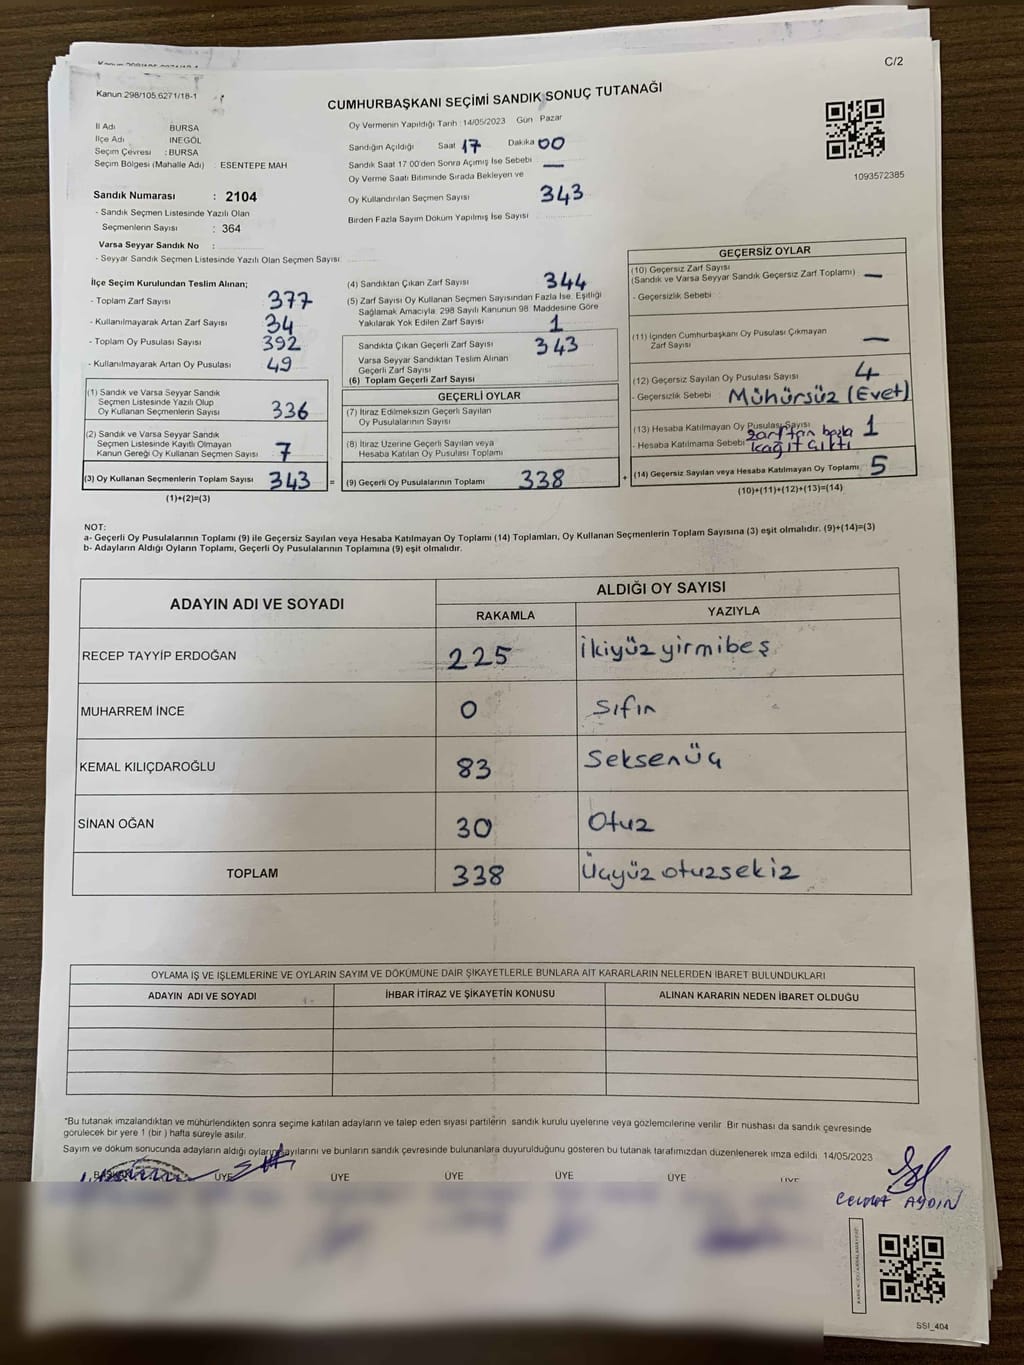 C/2
Kanun:298/105,6271/18-1
CUMHURBAŞKANI SEÇİMİ SANDIK SONUÇ TUTANAĞI
İl Adı BURSA
İlçe Adı INEGÖL
Seçim Çevresi :BURSA
Seçim Bölgesi (Mahalle Adı) : ESENTEPE MAH
Oy Vermenin Yapıldığı Tarih :14/05/2023 Gün Pazar
Sandığın Açıldığı Saat 17 Dakika 00
Sandık Saat 17:00'den Sonra Açımış İse Sebebi —
Oy Verme Saati Bitiminde Sırada Bekleyen ve
Oy Kullandırılan Seçmen Sayısı 343
Birden Fazla Sayım Döküm Yapılmış İse Sayısı
1093572385
Sandık Numarası : 2104
- Sandık Seçmen Listesinde Yazılı Olan
Seçmenlerin Sayısı : 364
Varsa Seyyar Sandık No :
- Seyyar Sandık Seçmen Listesinde Yazılı Olan Seçmen Sayısı:
İlçe Seçim Kurulundan Teslim Alınan;
- Toplam Zarf Sayısı 377
- Kullanılmayarak Artan Zarf Sayısı 34
- Toplam Oy Pusulası Sayısı 392
- Kullanılmayarak Artan Oy Pusulası 49
(1) Sandık ve Varsa Seyyar Sandık
Seçmen Listesinde Yazılı Olup
Oy Kullanan Seçmenlerin Sayısı 336
(2) Sandık ve Varsa Seyyar Sandık
Seçmen Listesinde Kayıtlı Olmayan
Kanun Gereği Oy Kullanan Seçmen Sayısı 7
(3) Oy Kullanan Seçmenlerin Toplam Sayısı 343
(1)+(2)=(3)
(4) Sandıktan Çıkan Zarf Sayısı 344
(5) Zarf Sayısı Oy Kullanan Seçmen Sayısından Fazla İse, Eşitliği
Sağlamak Amacıyla, 298 Sayılı Kanunun 98. Maddesine Göre
Yakılarak Yok Edilen Zarf Sayısı 1
Sandıkta Çıkan Geçerli Zarf Sayısı 343
Varsa Seyyar Sandıktan Teslim Alınan
Geçerli Zarf Sayısı
(6) Toplam Geçerli Zarf Sayısı
GEÇERLİ OYLAR
(7) İtiraz Edilmeksizin Geçerli Sayılan
Oy Pusulasının Sayısı
(8) İtiraz Üzerine Geçerli Sayılan veya
Hesaba Katılan Oy Pusulası Toplamı
= (9) Geçerli Oy Pusulalarının Toplamı 338 +
GEÇERSİZ OYLAR
(10) Geçersiz Zarf Sayısı
(Sandık ve Varsa Seyyar Sandık Geçersiz Zarf Toplamı) —
- Geçersizlik Sebebi
(11) İçinden Cumhurbaşkanı Oy Pusulası Çıkmayan
Zarf Sayısı —
(12) Geçersiz Sayılan Oy Pusulası Sayısı 4
- Geçersizlik Sebebi Mühürsüz (Evet)
(13) Hesaba Katılmayan Oy Pusulası Sayısı 1
- Hesaba Katılmama Sebebi zarftan başka
kağıt çıktı
(14) Geçersiz Sayılan veya Hesaba Katılmayan Oy Toplamı 5
(10)+(11)+(12)+(13)=(14)
NOT:
a- Geçerli Oy Pusulalarının Toplamı (9) ile Geçersiz Sayılan veya Hesaba Katılmayan Oy Toplamı (14) Toplamları, Oy Kullanan Seçmenlerin Toplam Sayısına (3) eşit olmalıdır. (9)+(14)=(3)
b- Adayların Aldığı Oyların Toplamı, Geçerli Oy Pusulalarının Toplamına (9) eşit olmalıdır.
ADAYIN ADI VE SOYADI ALDIĞI OY SAYISI
RAKAMLA YAZIYLA
RECEP TAYYİP ERDOĞAN 225 İkiyüz yirmibeş
MUHARREM İNCE 0 Sıfır
KEMAL KILIÇDAROĞLU 83 Seksenüç
SİNAN OĞAN 30 Otuz
TOPLAM 338 Üçyüz otuzsekiz
OYLAMA İŞ VE İŞLEMLERİNE VE OYLARIN SAYIM VE DÖKÜMÜNE DAİR ŞİKAYETLERLE BUNLARA AİT KARARLARIN NELERDEN İBARET BULUNDUKLARI
ADAYIN ADI VE SOYADI İHBAR İTİRAZ VE ŞİKAYETİN KONUSU ALINAN KARARIN NEDEN İBARET OLDUĞU
"Bu tutanak imzalandıktan ve mühürlendikten sonra seçime katılan adayların ve talep eden siyasi partilerin sandık kurulu üyelerine veya gözlemcilerine verilir. Bir nushası da sandık çevresinde
görülecek bir yere 1 (bir ) hafta süreyle asılır.
Sayım ve döküm sonucunda adayların aldığı oyların sayılarını ve bunların sandık çevresinde bulunanlara duyurulduğunu gösteren bu tutanak tarafımızdan düzenlenerek imza edildi. 14/05/2023
BAŞKAN ÜYE ÜYE ÜYE ÜYE ÜYE ÜYE
AYDIN
SSI_404